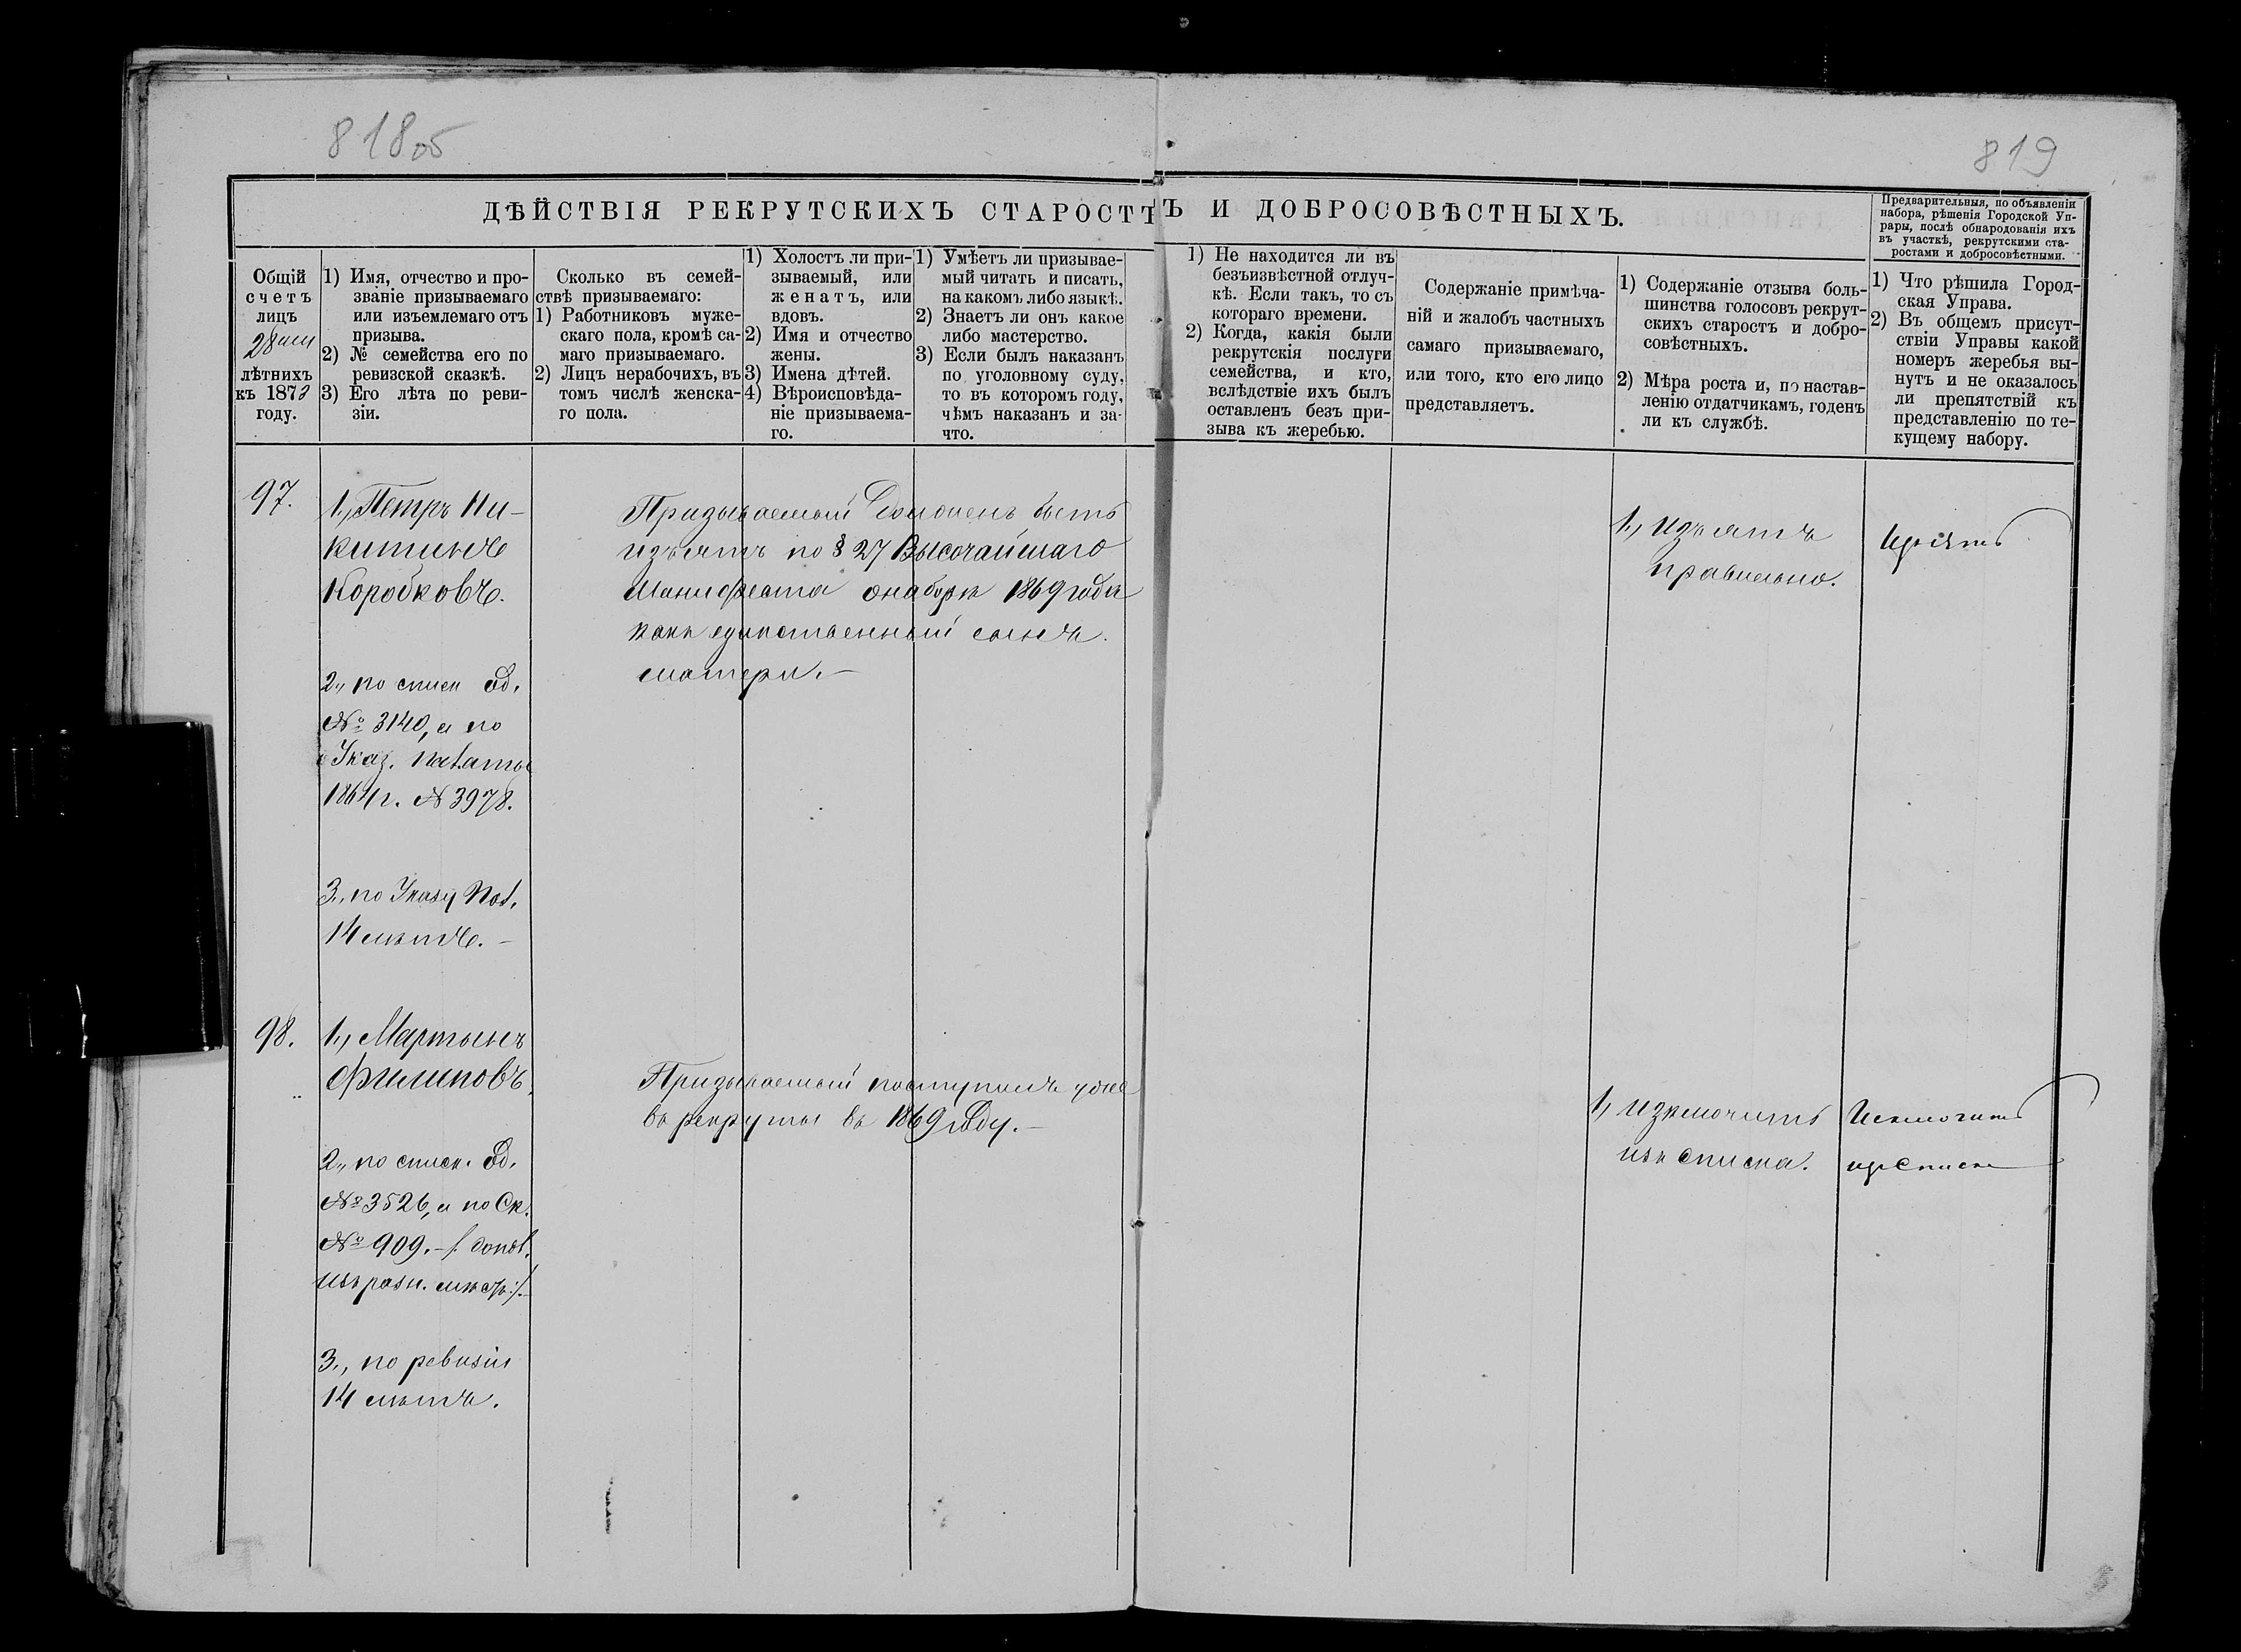 818об
819
ДѢЙСТВІЯ РЕКРУТСКИХЪ СТАРОСТЪ И ДОБРОСОВѢСТНЫХЪ.
Предварительныя, по объявленіи
набора, рѣшенія Городской Уп-
рары, послѣ обнародованія ихъ
въ участкѣ, рекрутскими ста-
ростами и добросовѣстными.
Общій
счетъ
лицъ
28ми
лѣтнихъ
къ 1873
году.
1) Имя, отчество и про-
званіе призываемаго
или изъемлемаго отъ
призыва.
2) № семейства его по
ревизской сказкѣ.
3) Его лѣта по реви-
зіи.
Сколько въ семей-
ствѣ призываемаго:
1) Работниковъ муже-
скаго пола, кромѣ са-
маго призываемаго.
2) Лицъ нерабочихъ, въ
томъ числѣ женска-
го пола.
1) Холостъ ли при-
зываемый, или
женатъ, или
вдовъ.
2) Имя и отчество
жены.
3) Имена дѣтей.
4) Вѣроисповѣда-
ніе призываема-
го.
1) Умѣетъ ли призывае-
мый читать и писать,
на какомъ либо языкѣ.
2) Знаетъ ли онъ какое
либо мастерство.
3) Если былъ наказанъ
по уголовному суду,
то въ которомъ году,
чѣмъ наказанъ и за-
что.
1) Не находится ли въ
безъизвѣстной отлуч-
кѣ. Если такъ, то съ
котораго времени.
2) Когда, какія были
рекрутскія послуги
семейства, и кто,
вслѣдствіе ихъ былъ
оставленъ безъ при-
зыва къ жеребью.
Содержаніе примѣча-
ній и жалобъ частныхъ
самаго призываемаго,
или того, кто его лицо
представляетъ.
1) Содержаніе отзыва боль-
шинства голосовъ рекрут-
скихъ старостъ и добро-
совѣстныхъ.
2) Мѣра роста и, по настав-
ленію отдатчикамъ, годенъ
ли къ службѣ.
1) Что рѣшила Город-
ская Управа.
2) Въ общемъ присут-
ствіи Управы какой
номеръ жеребья вы-
нутъ и не оказалось
ли препятствій къ
представленію по те-
кущему набору.
97.
1., Петръ Ни-
китинъ
Коробковъ.
2., по списк Об.
№ 3140, а по
Указ. Палаты
1864 г. № 3978.
3., по Указу Пал.
14 лѣтъ. –
Призываемый долженъ быть
изъятъ по § 27 Высочайшаго
Манифеста о наборѣ 1869 года
какъ единственный сынъ
матери. –
1., изъятъ
правильно.
Изъять
98.
1., Мартынъ
Филиповъ.
2., по списк. Об.
№ 3526, а по Ск.
№ 909. – /: допол.
изъ разн. мѣстъ :/. –
3., по ревизіи
14 лѣтъ.
Призываемый поступилъ уже
въ рекруты въ 1869 году. –
1., изключить
изъ списка.
Исключить
изъ списк